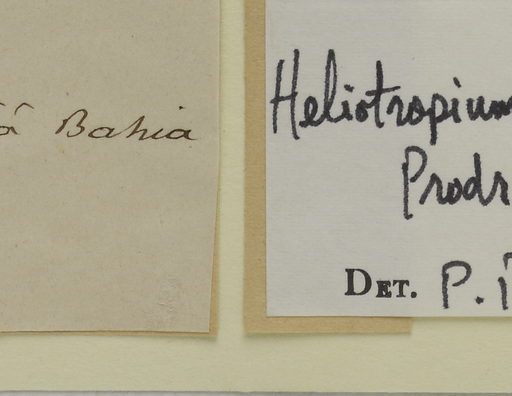 Bahia
Heliotropium
Prodr
DET. P.